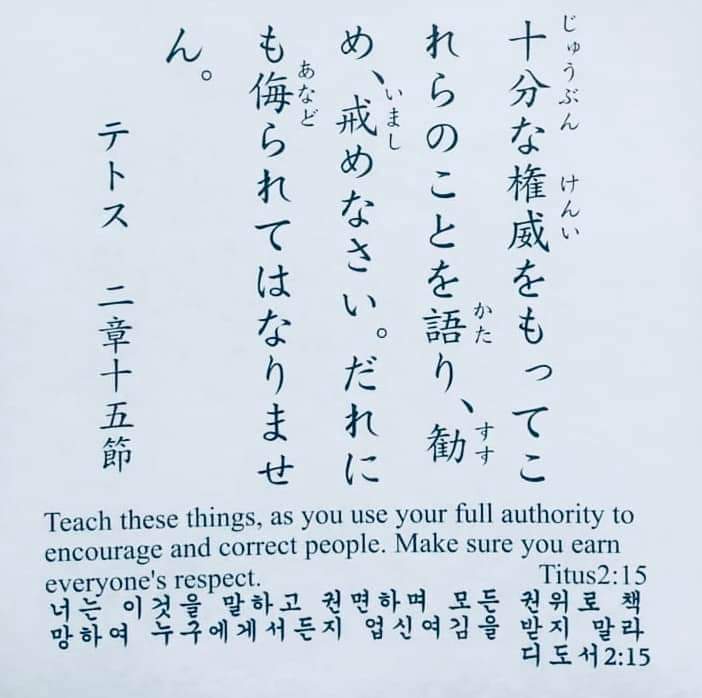 十分な権威をもってこ
じゅうぶん けんい
れらのことを語り、勧
かた すす
め、戒めなさい。だれに
いまし
も侮られてはなりませ
あなど
ん。
テトス 二章十五節
Teach these things, as you use your full authority to
encourage and correct people. Make sure you earn
everyone's respect. Titus2:15
너는 이것을 말하고 권면하며 모든 권위로 책
망하여 누구에게서든지 업신여김을 받지 말라
디도서2:15